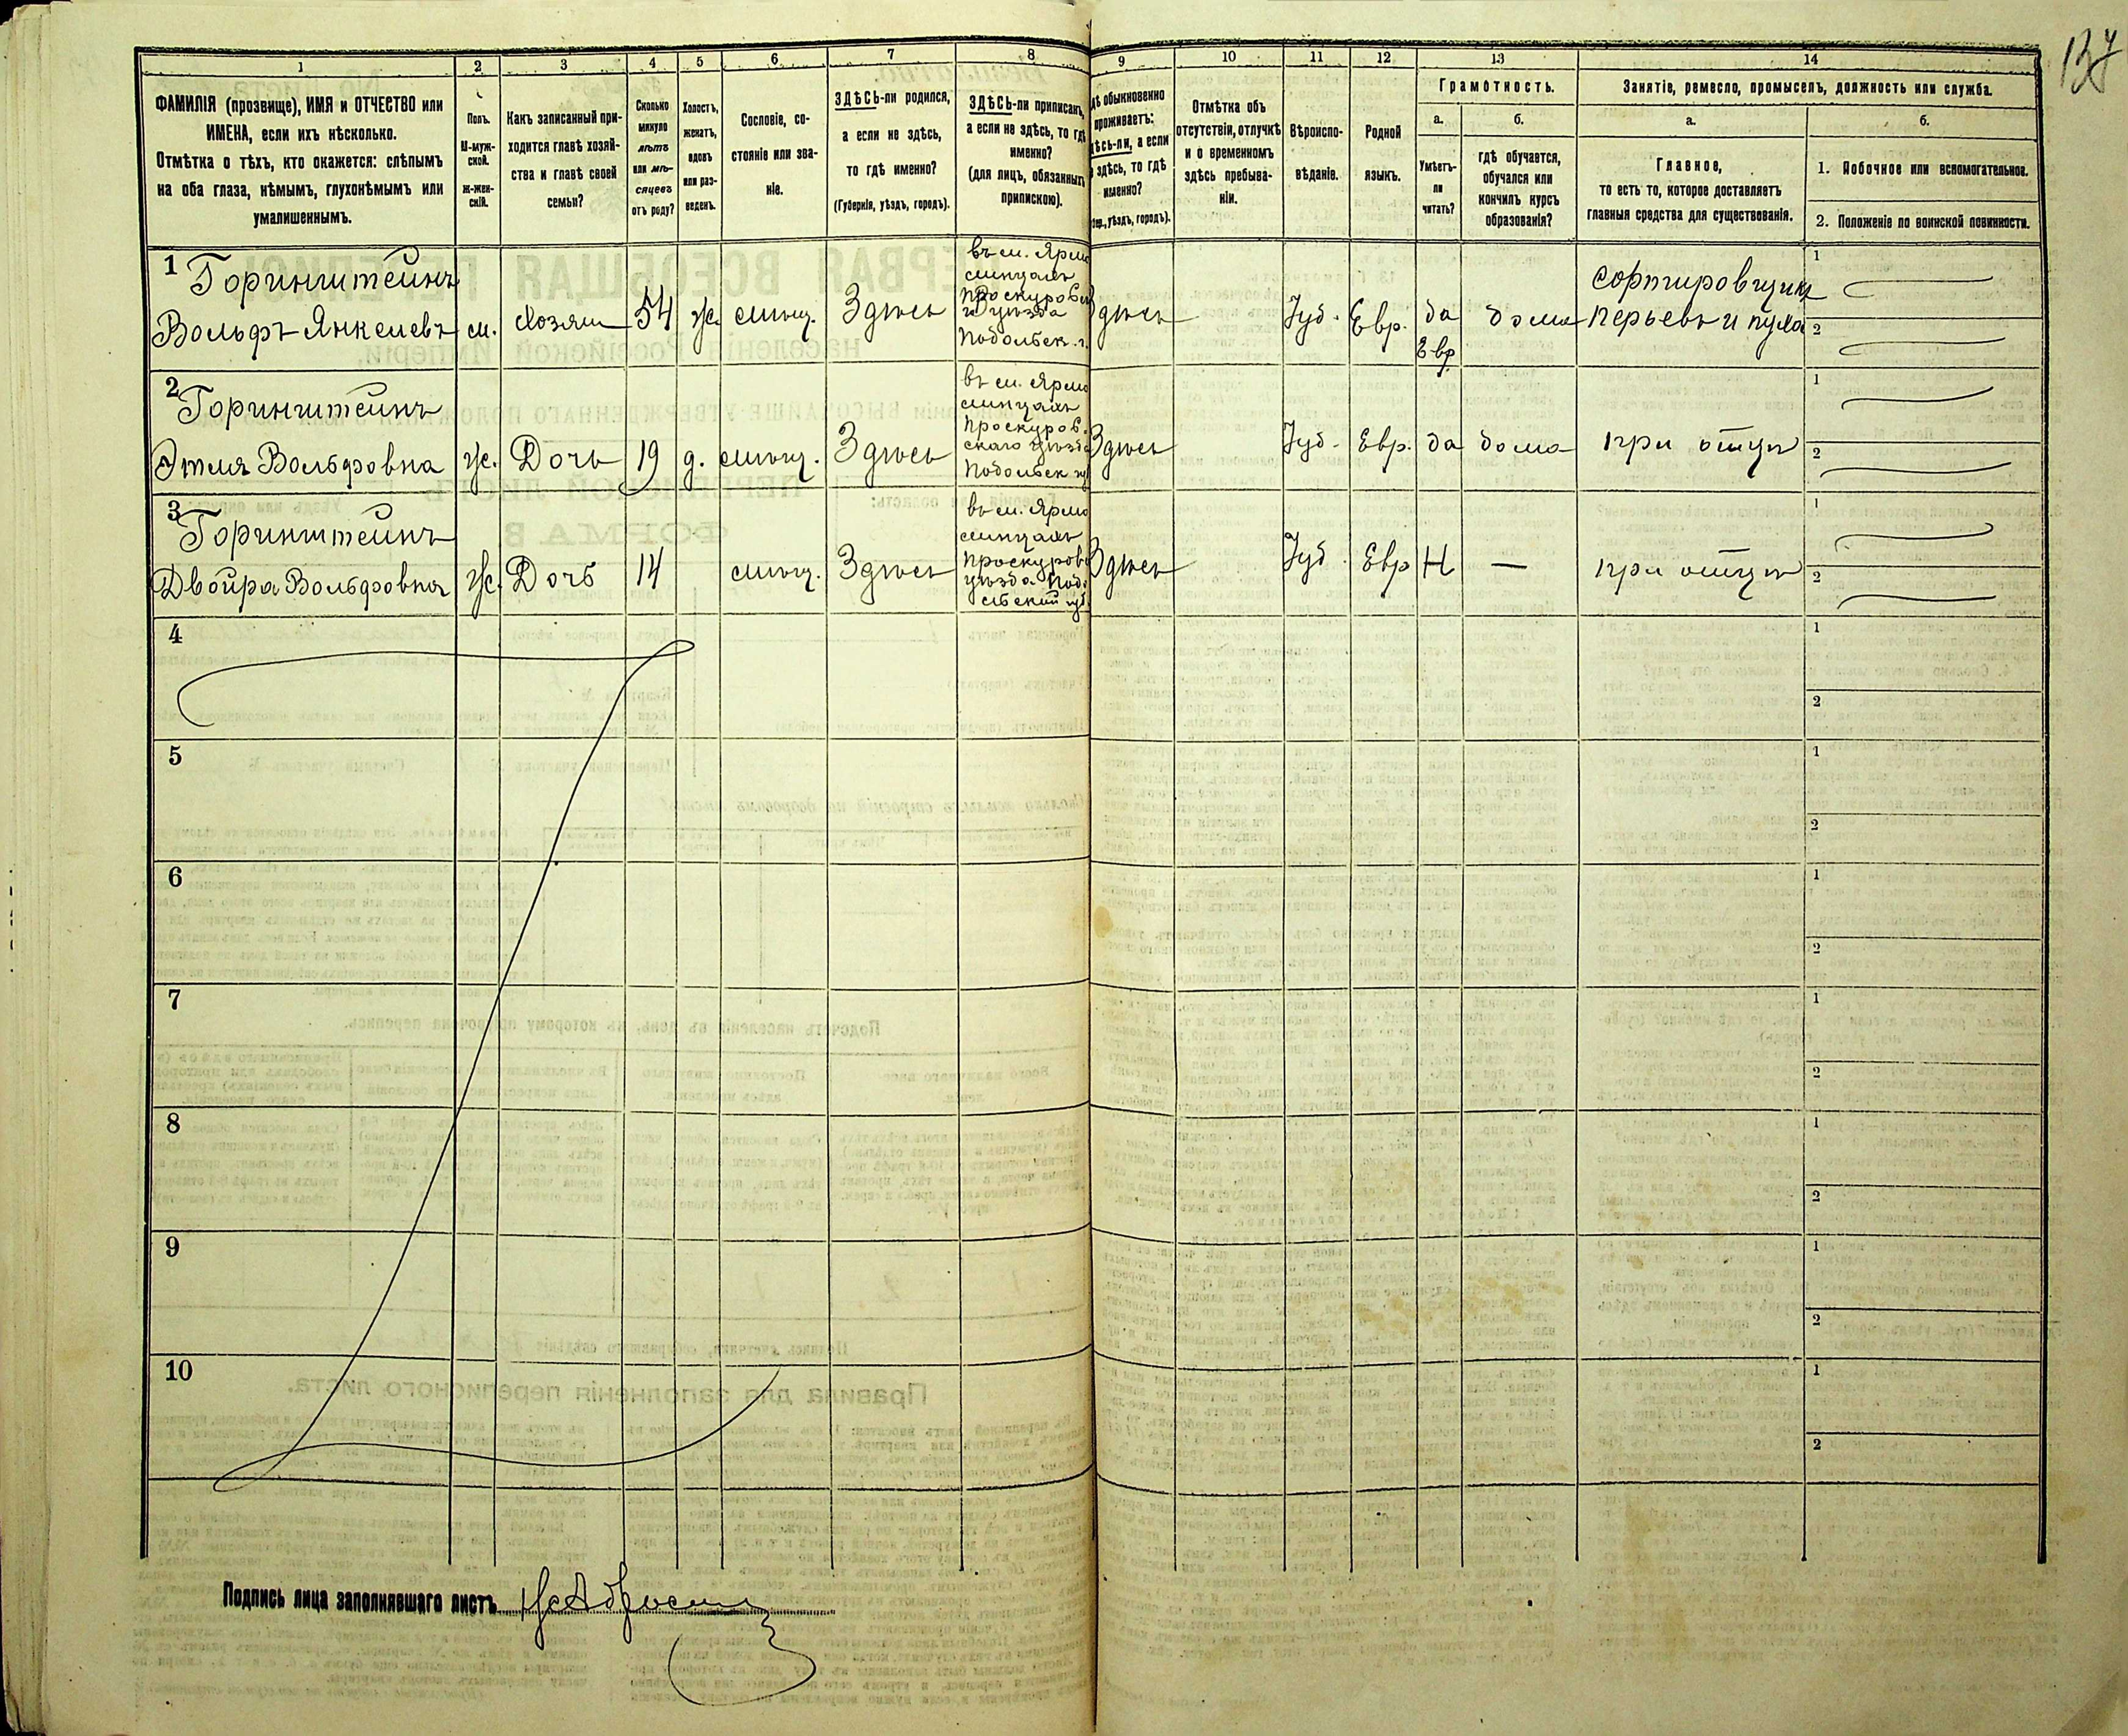 134
1
2
3
4
5
6
7
8
9
10
11
12
13
14
ФАМИЛІЯ (прозвище), ИМЯ и ОТЧЕСТВО или
ИМЕНА, если ихъ нѣсколько.
Отмѣтка о тѣхъ, кто окажется: слѣпымъ
на оба глаза, нѣмымъ, глухонѣмымъ или
умалишеннымъ.
Полъ.
М-муж-
ской.
Ж-жен-
скій.
Какъ записанный при-
ходится главѣ хозяй-
ства и главѣ своей
семьи?
Сколько
минуло
лѣтъ
или мѣ-
сяцевъ
отъ роду?
Холостъ,
женатъ,
вдовъ
или раз-
веденъ.
Сословіе, со-
стояніе или зва-
ніе.
ЗДѢСЬ-ли родился,
а если не здѣсь,
то гдѣ именно?
(Губернія, уѣздъ, городъ).
ЗДѢСЬ-ли приписанъ,
а если не здѣсь, то гдѣ
именно?
(для лицъ, обязанныхъ
припискою).
обыкновенно
проживаетъ:
а если
здѣсь, то гдѣ
именно?
уѣздъ, городъ).
Отмѣтка объ
отсутствіи, отлучкѣ
и о временномъ
здѣсь пребыва-
ніи.
Вѣроиспо-
вѣданіе.
Родной
языкъ.
Грамотность.
а.
Умѣетъ-
ли
читать?
б.
гдѣ обучается,
обучался или
кончилъ курсъ
образованія?
Занятіе, ремесло, промыселъ, должность или служба.
а.
Главное,
то есть то, которое доставляетъ
главныя средства для существованія.
б.
1. Побочное или вспомогательное.
2. Положеніе по воинской повинности.
1 Горинштейнъ
Вольфъ Янкелевъ
м.
Хозяин
54
ж.
мѣщ.
Здѣсь
въ м. Ярмо
линцахъ
Проскуровск
уѣзда
Подольск. г.
Здѣсь
Іуд.
Евр.
да
Евр
дома
сортировщик
перьевъ и пуха
1
2
2 Горинштейнъ
Этля Вольфовна
ж.
Дочь
19
д.
мѣщ.
Здѣсь
въ м. Ярмо
линцахъ
Проскуров.
скаго уѣзда
Подольск
Здѣсь
Іуд.
Евр.
да
дома
при отцѣ
1
2
3 Горинштейнъ
Двойра Вольфовна
ж.
Дочь
14
мѣщ.
Здѣсь
въ м. Ярмо
линцахъ
Проскуров
уѣзда Под
Здѣсь
Іуд.
Евр
Н
—
при отцѣ
1
2
4
1
2
5
1
2
6
1
2
7
1
2
8
1
2
9
1
2
10
1
2
Подпись лица заполнявшаго листъ